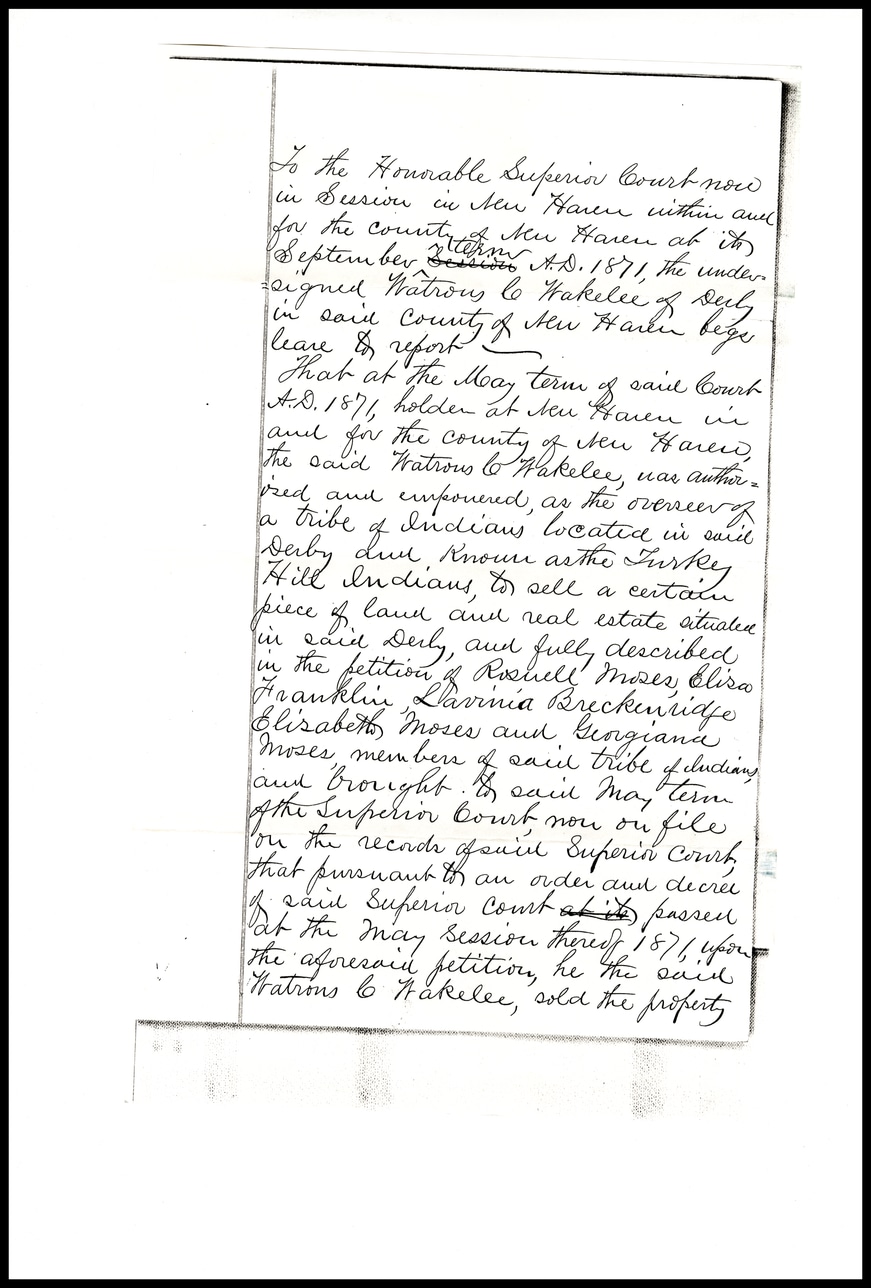 To the Honorable Superior Court now
in Session in New Haven within and
for the county of New Haven at its
term
September Session A.D. 1871, the under-
=signed Watrous C Wakelee of Derby
in said County of New Haven begs
leave to report —
That at the May term of said Court
A.D. 1871, holden at New Haven in
and for the county of New Haven,
the said Watrous C Wakelee, was author=
ised and empowered, as the overseer of
a tribe of Indians located in said
Derby and Known as the Turkey
Hill Indians, to sell a certain
piece of land and real estate situated
in said Derby, and fully described
in the petition of Roswell Moses, Eliza
Franklin, Lavinia Breckenridge
Elizabeth Moses and Georgiana
Moses, members of said tribe of Indians,
and brought to said May term
of the Superior Court, now on file
on the records of said Superior Court,
that pursuant to an order and decree
of said Superior Court at its passed
at the May Session thereof 1871, upon
the aforesaid petition, he the said
Watrous C Wakelee, sold the property